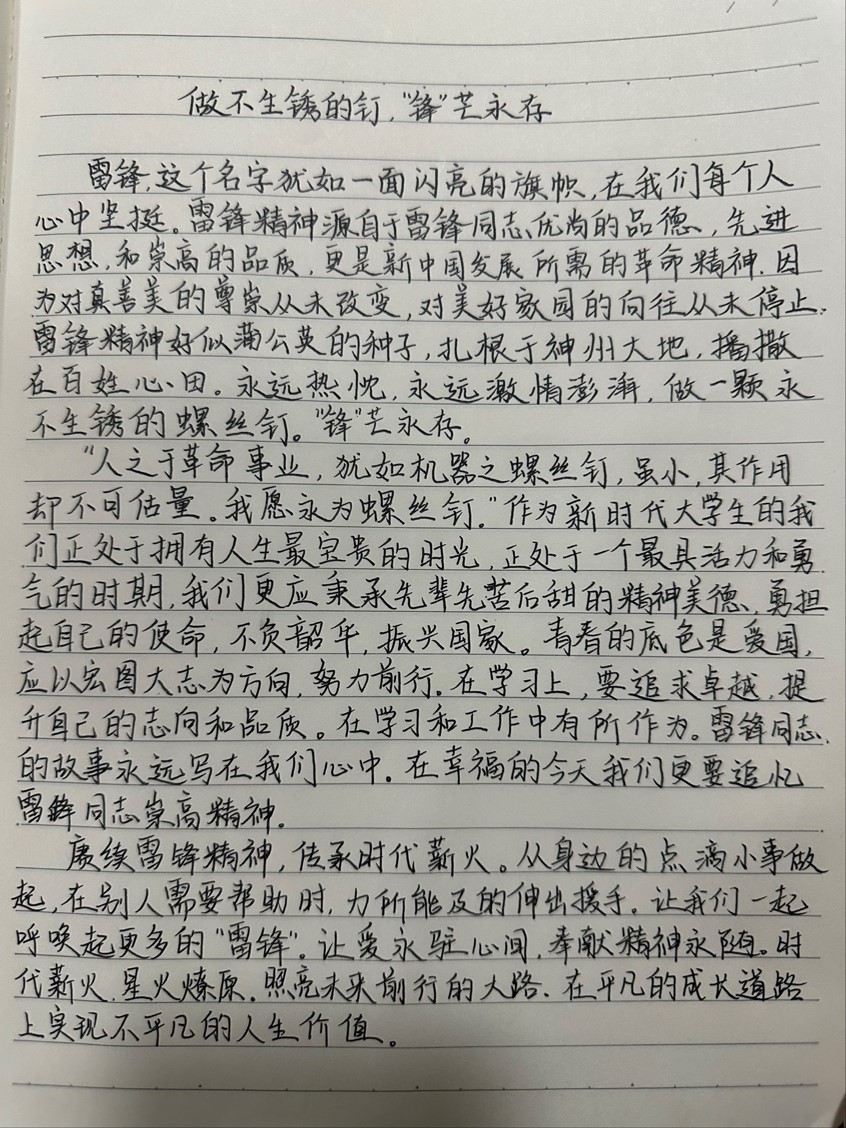 做不生锈的钉，“锋”芒永存
雷锋，这个名字犹如一面闪亮的旗帜，在我们每个人
心中坚挺。雷锋精神源自于雷锋同志优尚的品德、先进
思想，和崇高的品质，更是新中国发展所需的革命精神。因
为对真善美的尊崇从未改变，对美好家园的向往从未停止。
雷锋精神好似蒲公英的种子，扎根于神州大地，播撒
在百姓心田。永远热忱，永远激情澎湃，做一颗永
不生锈的螺丝钉。“锋”芒永存。
“人之于革命事业，犹如机器之螺丝钉，虽小，其作用
却不可估量。我愿永为螺丝钉。”作为新时代大学生的我
们正处于拥有人生最宝贵的时光，正处于一个最具活力和勇
气的时期，我们更应秉承先辈先苦后甜的精神美德，勇担
起自己的使命，不负韶华，振兴国家。青春的底色是爱国，
应以宏图大志为方向，努力前行。在学习上，要追求卓越，提
升自己的志向和品质。在学习和工作中有所作为。雷锋同志
的故事永远写在我们心中。在幸福的今天我们更要追忆
雷锋同志崇高精神。
赓续雷锋精神，传承时代薪火。从身边的点滴小事做
起，在别人需要帮助时，力所能及的伸出援手。让我们一起
呼唤起更多的“雷锋”。让爱永驻心间，奉献精神永随。时
代薪火，星火燎原。照亮未来前行的大路、在平凡的成长道路
上实现不平凡的人生价值。